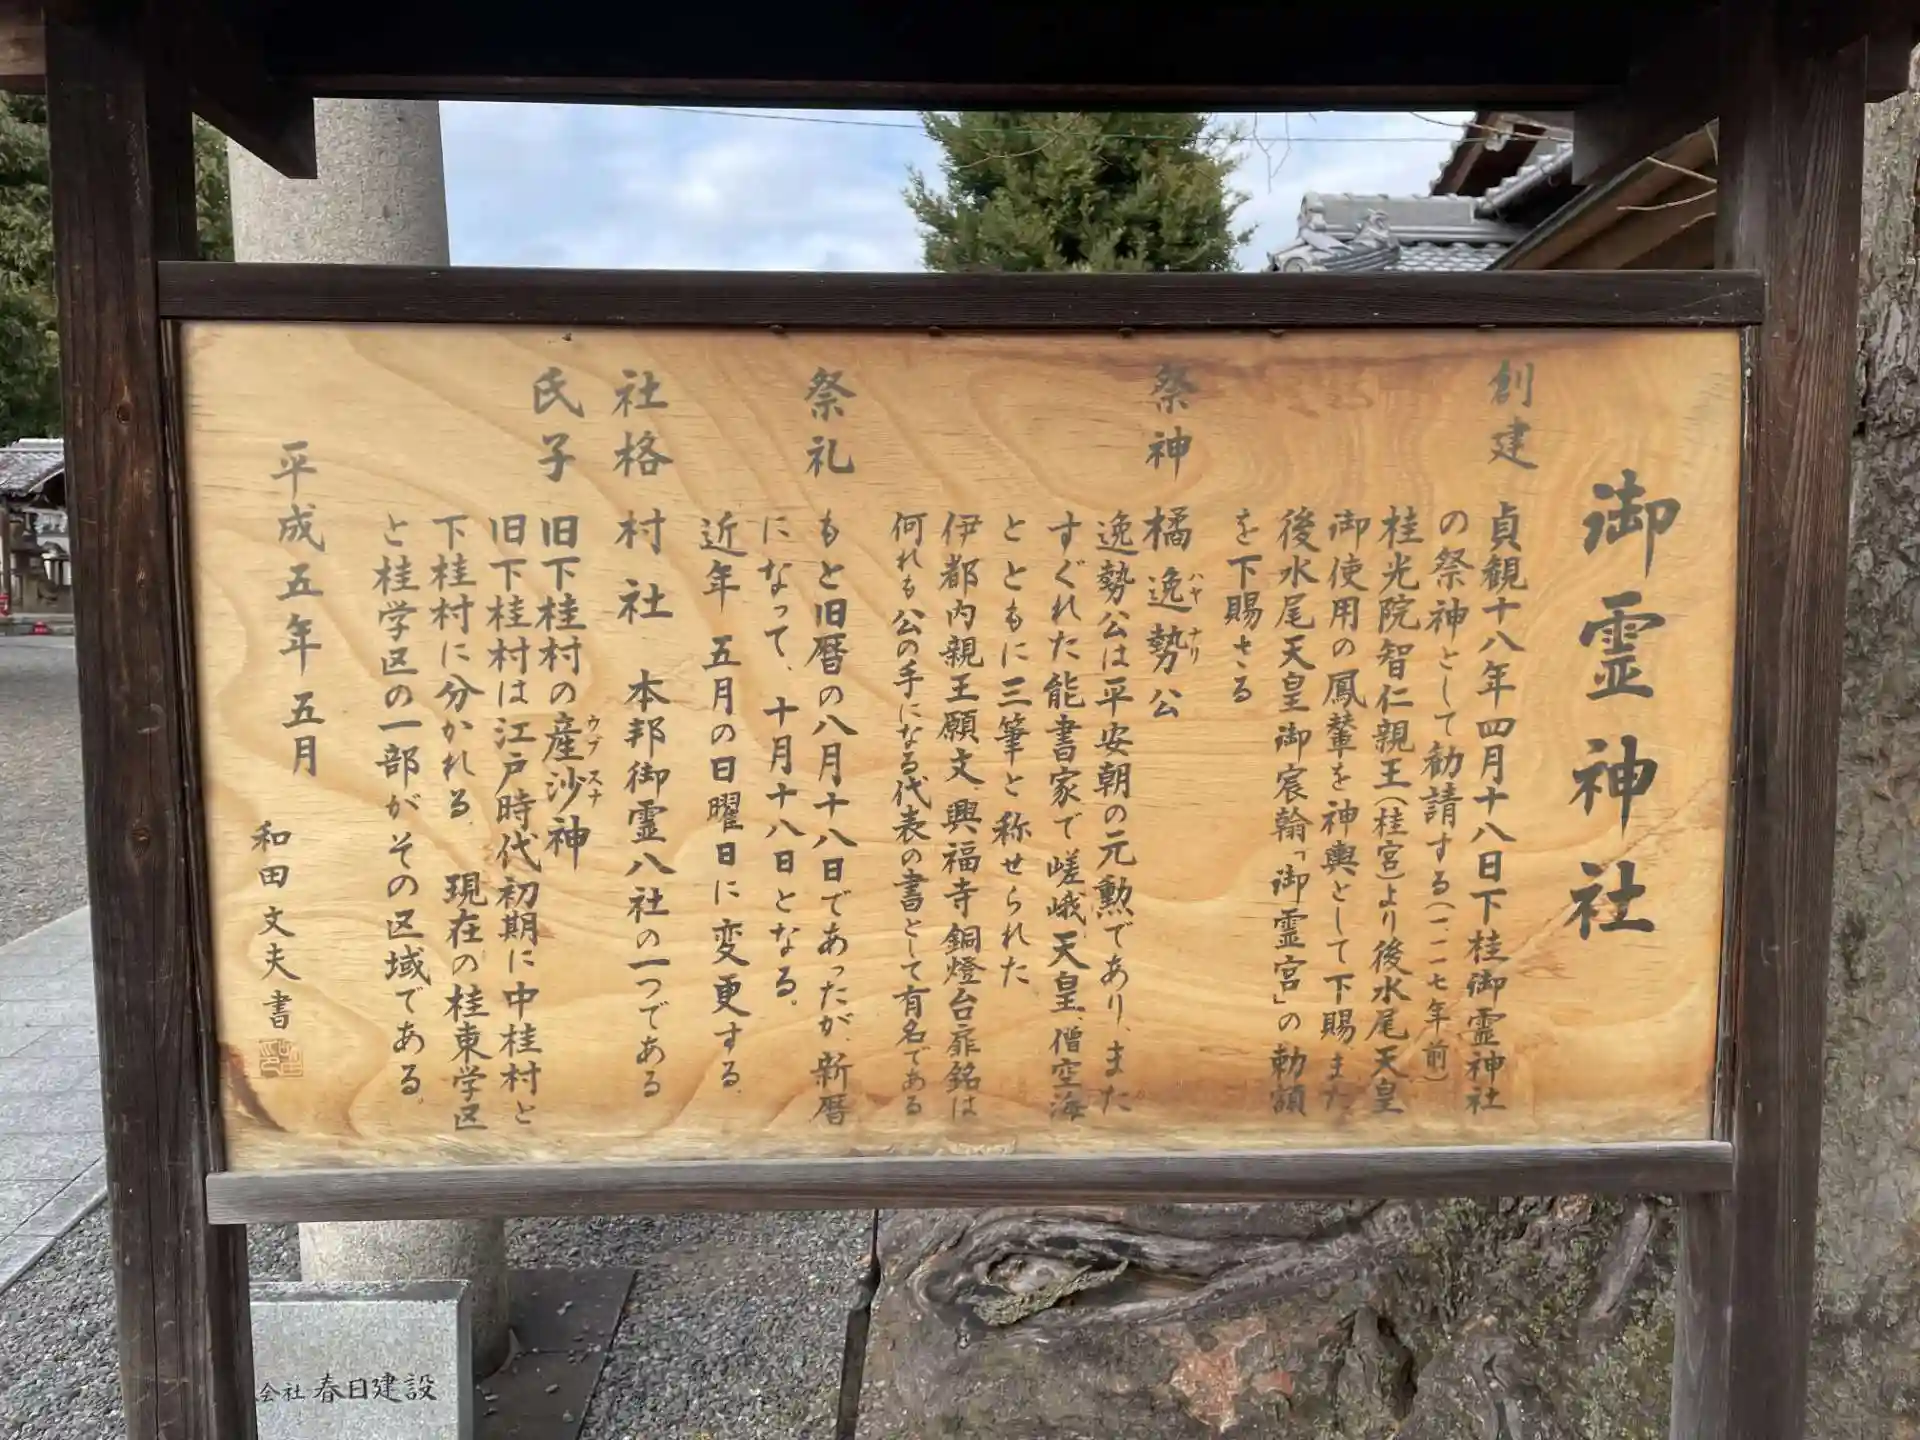 御霊神社
創建 貞観十八年四月十八日下桂御霊神社
の祭神として勧請する(一、一一七年前)
桂光院智仁親王(桂宮)より後水尾天皇
御使用の鳳輦を神輿として下賜、また
後水尾天皇御宸翰「御霊宮」の勅額
を下賜さる
祭神 橘逸勢公
ハヤ ナリ
逸勢公は平安朝の元勲であり、また
すぐれた能書家で嵯峨天皇、僧空海
とともに三筆と称せられた
伊都内親王願文、興福寺銅燈台扉銘は
何れも公の手になる代表の書として有名である
祭礼 もと旧暦の八月十八日であったが、新暦
になって、十月十八日となる。
近年 五月の日曜日に変更する。
社格 村社 本邦御霊八社の一つである
氏子 旧下桂村の産沙神
ウブスナ
旧下桂村は江戸時代初期に中桂村と
下桂村に分かれる。現在の桂東学区
と桂学区の一部がその区域である。
平成五年五月
和田文夫書
会社 春日建設